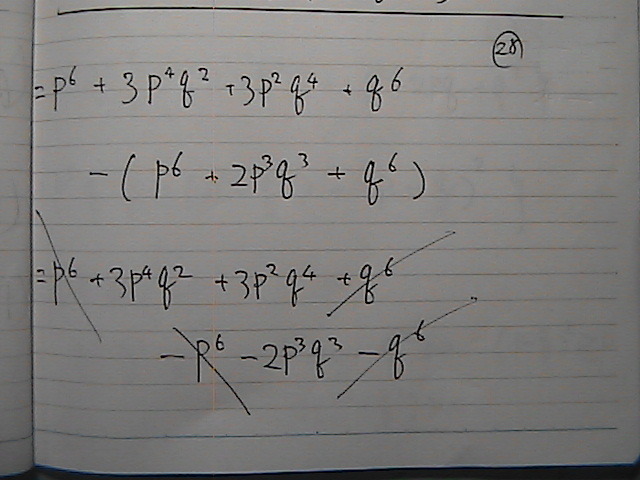 28
= p⁶ + 3p⁴q² + 3p²q⁴ + q⁶
- (p⁶ + 2p³q³ + q⁶)
= p⁶ + 3p⁴q² + 3p²q⁴ + q⁶
- p⁶ - 2p³q³ - q⁶